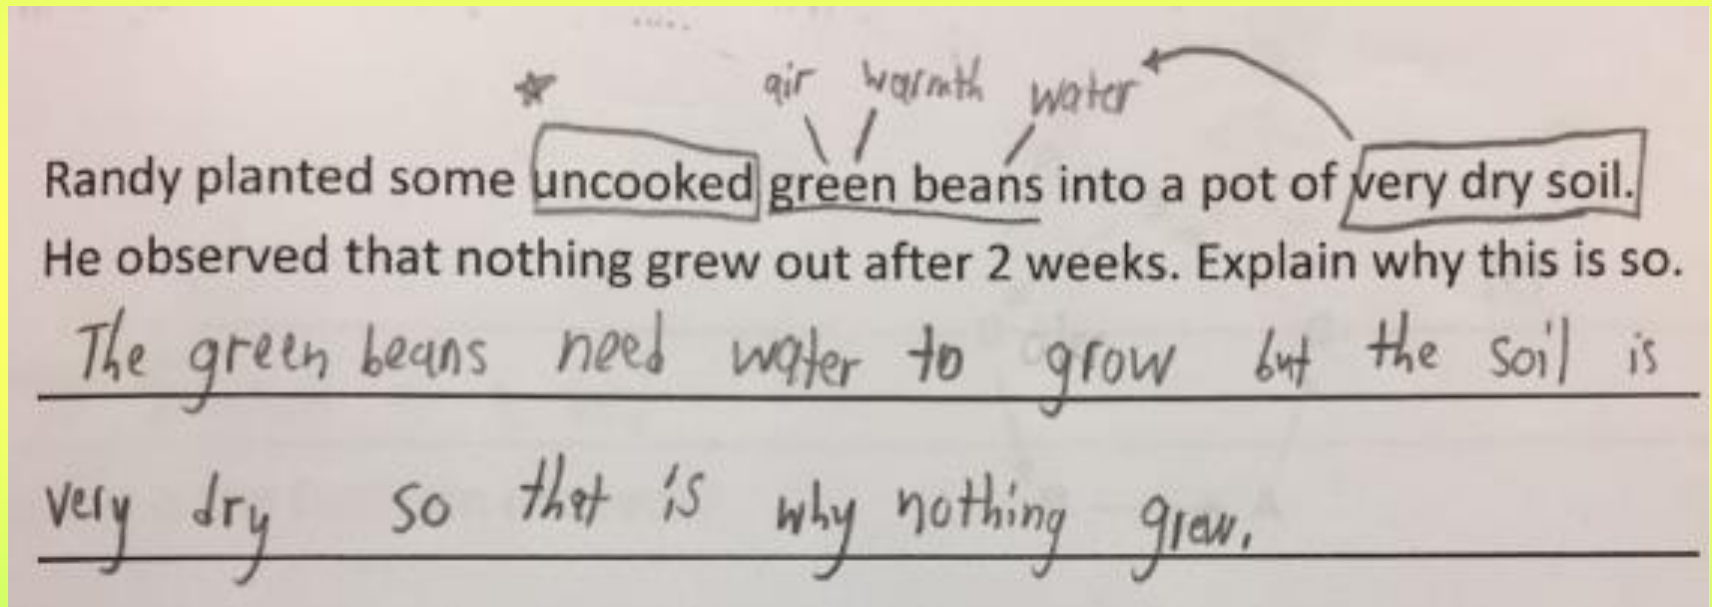 air warmth water
Randy planted some uncooked green beans into a pot of very dry soil.
He observed that nothing grew out after 2 weeks. Explain why this is so.
The green beans need water to grow but the soil is
very dry so that is why nothing grew.